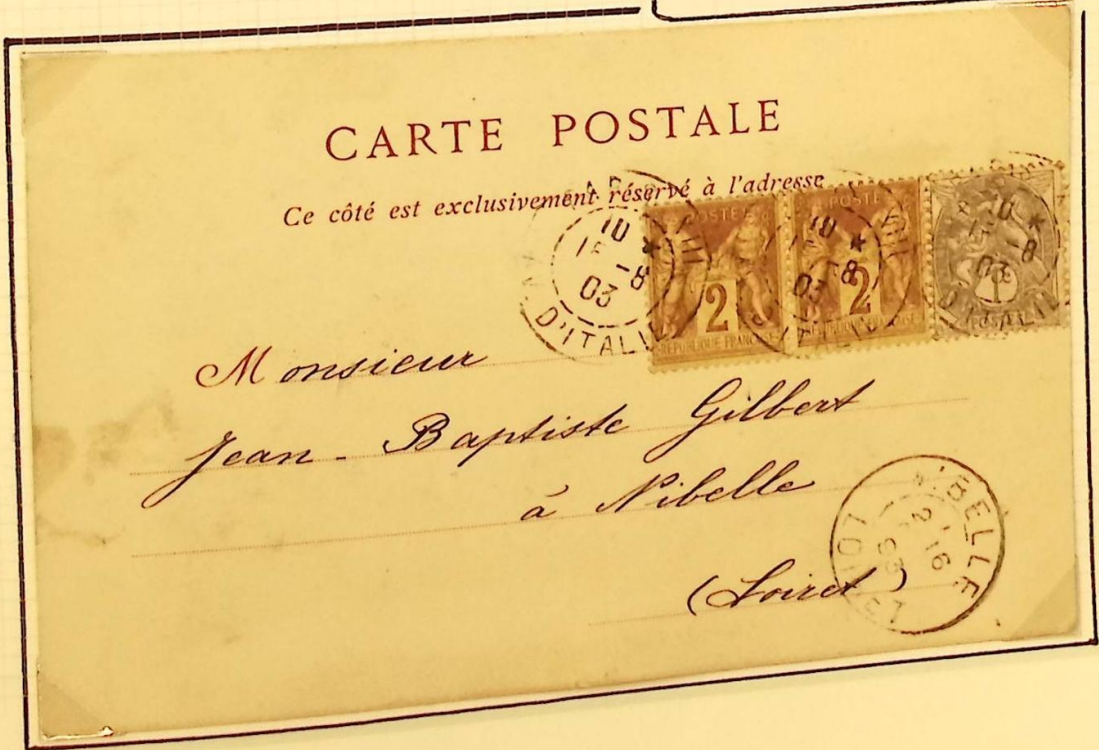 CARTE POSTALE
Ce côté est exclusivement réservé à l'adresse
POSTE
POSTE
10
15 -8
03
D'ITALIE
2
RÉPUBLIQUE FRANÇAISE
10
-8
03
2
RÉPUBLIQUE FRANÇAISE
10
-8
03
D'ITALIE
1
POSTES
Monsieur
Jean-Baptiste Gilbert
à Nibelle
(Loiret)
NIBELLE
16
LOIRET